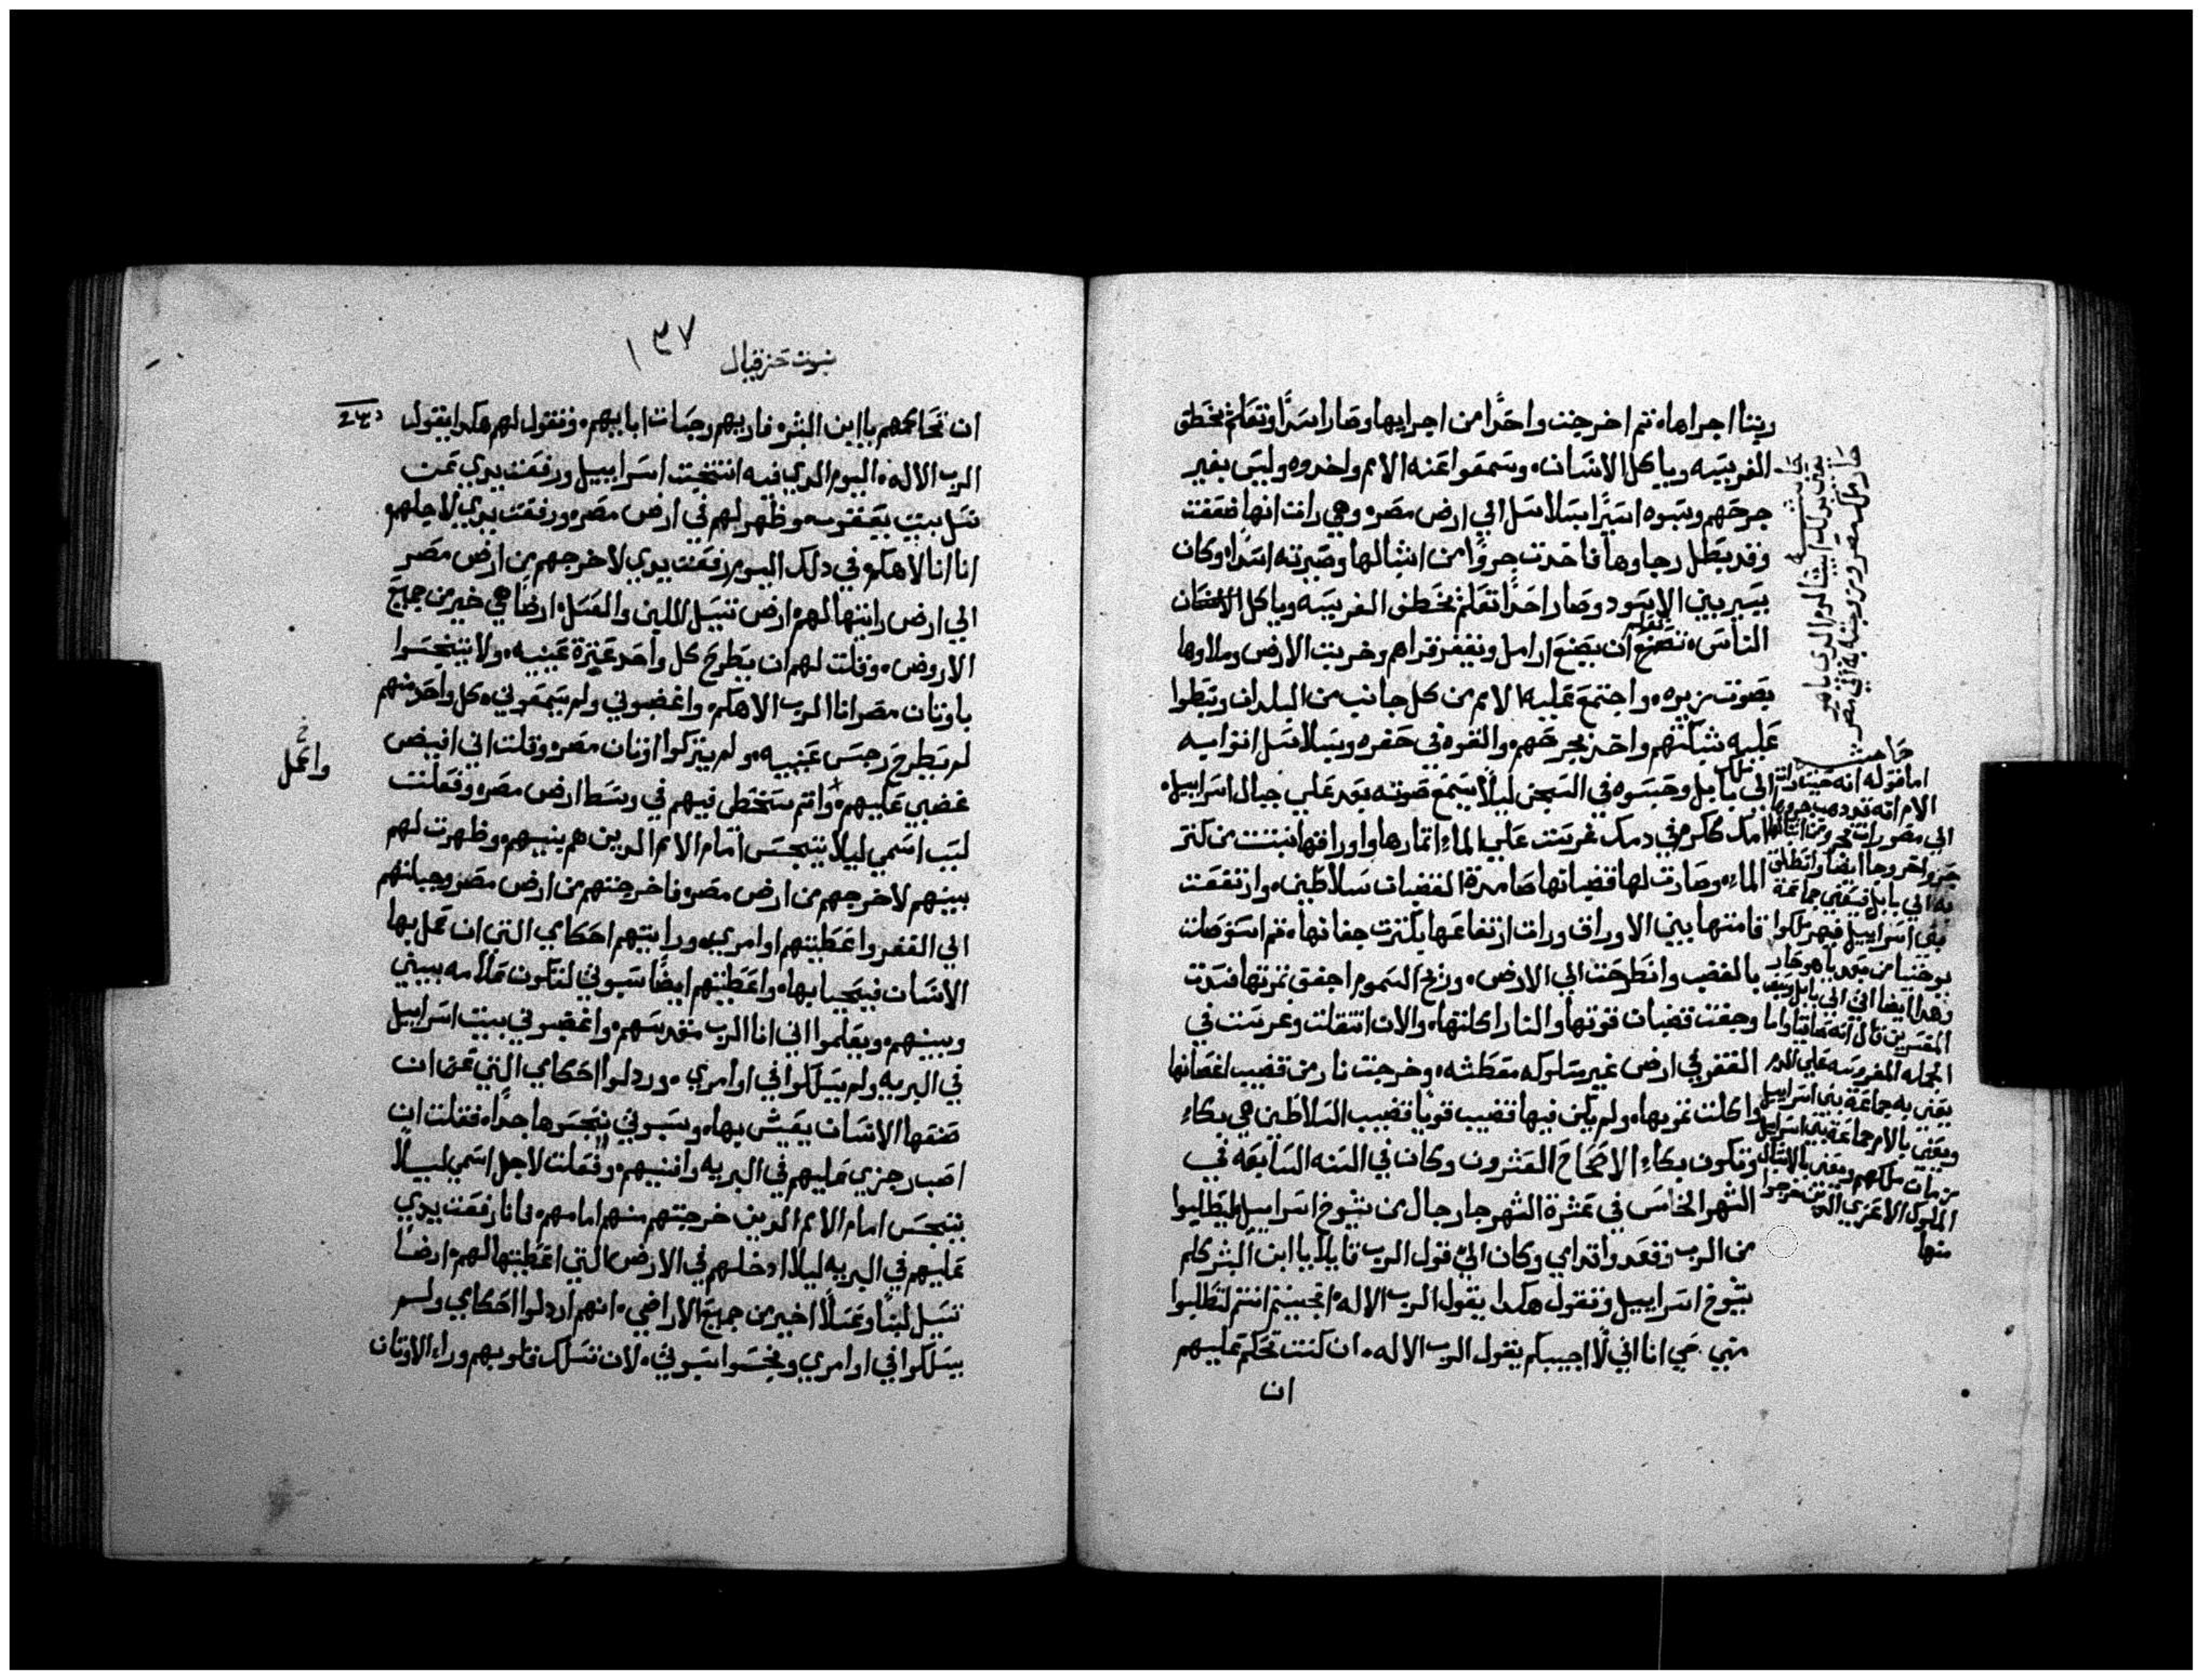 ربتا اجراها، ثم اخرجت واحدًا من اجرايها وصار اسدًا وتعلم يخطف
الفريسه وياكل الانسان، وسمعوا عنه الامم واخدوه وليس بغير
جرحهم وسبوه اسيرًا بسلاسل الي ارض مصر، وهي رات انها ضعفت
وقد بطل رجاوها فاخدت جروًا من اشبالها وصيرته اسدًا، وكان
يسير بين الاسود وصار احدًا تعلم يخطف الفريسه وياكل
الناس، تعلم ان يصنع ارامل ويقفر قراهم وخربت الارض وملاوها
بصوت زييره، واجتمع عليه الامم من كل جانب من البلدان وبسطوا
عليه شباكهم واخد بجرحهم، والقوه في حفره وبسلاسل اتوا به
الي ملك بابل وحبسوه في السجن ليلا يسمع صوته بعد علي جبال اسراييل،
امك كالكرم في دمك غرست علي الماء اتمارها واوراقها نبتت من كتر
الماء، وصارت لها قضبانها صامدة القضبان سلاطين، وارتفعت
قامتها بين الاوراق ورات ارتفاعها بكترت جفانها، ثم استوصلت
بالغضب وانطرحت الي الارض، وريح السموم اجفف تمرتها فسدت
وجفت قضبان قوتها والنار اكلتها، والان انتقلت وغرست في
القفر في ارض غير مسلوكه معطشه، وخرجت نار من قضيب اغصانها
واكلت تمرتها، ولم يكن فيها قضيب قويا قضيب السلاطين هي بكاء
وتكون بكاء الاصحاح العشرون وكان في السنه السابعه في
الشهر الخامس في عشرة الشهر جا رجال من شيوخ اسراييل ليطلبوا
من الرب وقعدوا قدامي وكان الي قول الرب قايلا يا ابن البشر كلم
شيوخ اسراييل وتقول هكدا يقول الرب الاله، اتجيتم انتم لتطلبوا
مني، حي انا اني لا اجيبكم يقول الرب الاله، ان كنت تحكم عليهم
ان
حاشيه
اما قوله انه حيت رات
الام انه قد دهب جروها
الي مصر رات تجروين اشبالها
جروا اخر وجا ايضا وانطلق
به الي بابل فيعني جماعة
بني اسراييل فيهم ملكوا
يوخنيا من بعد ياهوحاز
وهدا ايضا اتي الي بابل
المفسرين قال انه صدقيا واما
الجمله المغروسه علي الماء
يعني به جماعة بني اسراييل
ويعني بالام جماعة بني اسراييل
من مات ملكهم ويعني بالاشبال
الملوك الاخري الدين خرجوا
منها
نبوت حزقيال
١٣٧
ان تحاكمهم يا ابن البشر، فاريهم رجسات اباييهم، وتقول لهم هكدا يقول
الرب الاله، اليوم الدي فيه انتخبت اسراييل ورفعت يدي عمت
نسل بيت يعقوب، وظهر لهم في ارض مصر، ورفعت يدي لاجلهم،
انا انا الاهكم، في دلك اليوم رفعت يدي لاخرجهم من ارض مصر
الي ارض رايتها لهم، ارض تسيل اللبن والعسل، ارضا هي خير من جميع
الاروض، وقلت لهم ان يطرح كل واحد عترة عينيه، ولا تتنجسوا
باوتان مصر انا الرب الاهكم، واغضبوني ولم يسمعوني، كل واحد منهم
لم يطرح رجس عينيه، ولم يتركوا اوتان مصر، وقلت اني افيض
غضبي عليهم، واتم سخطي فيهم في وسط ارض مصر، وفعلت
لسبب اسمي ليلا يتنجس امام الامم الدين هم بينهم، وظهرت لهم
بينهم لاخرجهم من ارض مصر، فاخرجتهم من ارض مصر وجبلتهم
الي القفر واعطيتهم اوامري، ورايتهم احكامي التي ان عمل بها
الانسان فيحيا بها، واعطيتهم ايضًا سبوتي لتكون علامه بيني
وبينهم، ويعلموا اني انا الرب مقدسهم، واغضبوني بيت اسراييل
في البريه ولم يسلكوا في اوامري، وردلوا احكامي التي عن ان
صنعها الانسان يعيش بها، وسبوتي نجسوها جدا، فقلت ان
اصب رجزي عليهم في البريه وافنيهم، وفعلت لاجل اسمي ليلا
يتنجس امام الامم الدين خرجتهم منهم امامهم، فانا رفعت يدي
عليهم في البريه ليلا ادخلهم في الارض التي اعطيتها لهم، ارضًا
تسيل لبنا وعسلًا اخير من جميع الاراضي، انهم اردلوا احكامي ولم
يسلكوا في اوامري ونجسوا سبوتي، لان تسلك قلوبهم وراء الاوتان
خ
واعمل